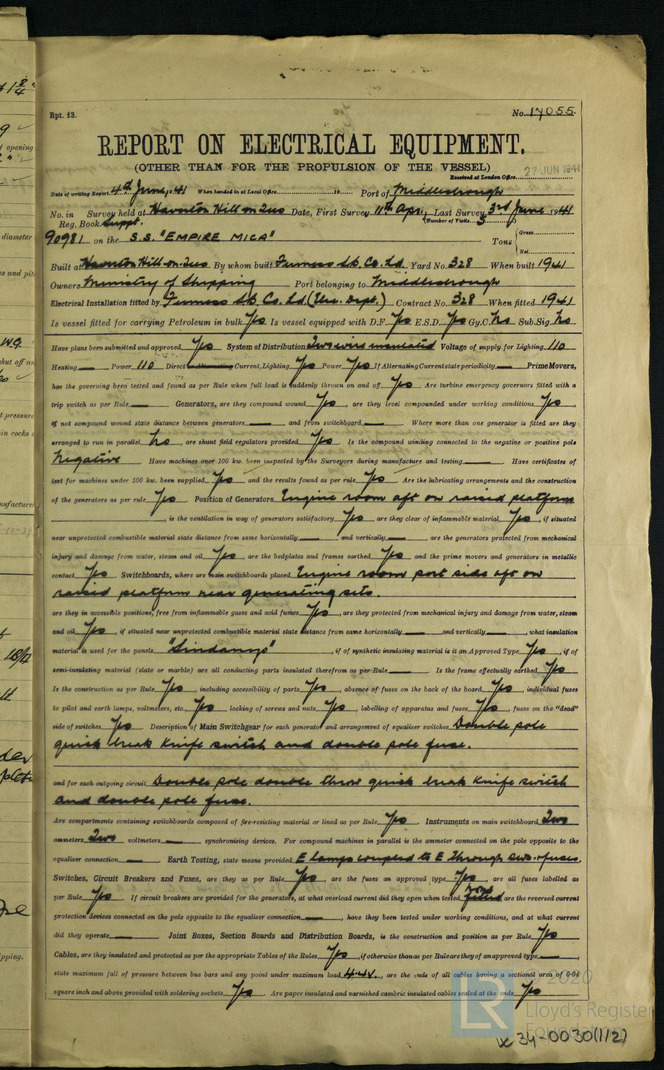 Rpt. 13.
No. 17055.
REPORT ON ELECTRICAL EQUIPMENT.
(OTHER THAN FOR THE PROPULSION OF THE VESSEL)
Received at London Office 27 JUN 1941
Date of writing Report 4th June, 1941 When handed in at Local Office 19 Port of Middlesbrough
No. in Survey held at Haverton Hill-on-Tees Date, First Survey 11th Apr., Last Survey 3rd June 1941
Reg. Book. Suppt. (Number of Visits 5)
90981 on the S.S. "EMPIRE MICA" Tons { Gross Net
Built at Haverton Hill-on-Tees By whom built Furness S.B. Co. Ld. Yard No. 328 When built 1941
Owners Ministry of Shipping Port belonging to Middlesbrough
Electrical Installation fitted by Furness S.B. Co. Ld. (Elec. Dept.) Contract No. 328 When fitted 1941
Is vessel fitted for carrying Petroleum in bulk Yes Is vessel equipped with D.F. Yes E.S.D. Yes Gy.C. No Sub.Sig. No
Have plans been submitted and approved Yes System of Distribution Two wire insulated Voltage of supply for Lighting 110
Heating — Power 110 Direct or Alternating Current, Lighting Yes Power Yes If Alternating Current state periodicity — Prime Movers,
has the governing been tested and found as per Rule when full load is suddenly thrown on and off Yes Are turbine emergency governors fitted with a
trip switch as per Rule — Generators, are they compound wound Yes, are they level compounded under working conditions Yes
if not compound wound state distance between generators — and from switchboard — Where more than one generator is fitted are they
arranged to run in parallel No, are shunt field regulators provided Yes Is the compound winding connected to the negative or positive pole
Negative Have machines over 100 kw. been inspected by the Surveyors during manufacture and testing — Have certificates of
test for machines under 100 kw. been supplied Yes and the results found as per rule Yes Are the lubricating arrangements and the construction
of the generators as per rule Yes Position of Generators Engine room aft on raised platform
, is the ventilation in way of generators satisfactory Yes are they clear of inflammable material Yes, if situated
near unprotected combustible material state distance from same horizontally — and vertically —, are the generators protected from mechanical
injury and damage from water, steam and oil Yes, are the bedplates and frames earthed Yes and the prime movers and generators in metallic
contact Yes Switchboards, where are main switchboards placed Engine room port side aft on
raised platform near generating sets.
are they in accessible positions, free from inflammable gases and acid fumes Yes, are they protected from mechanical injury and damage from water, steam
and oil Yes, if situated near unprotected combustible material state distance from same horizontally — and vertically —, what insulation
material is used for the panels "Sindanyo", if of synthetic insulating material is it an Approved Type Yes, if of
semi-insulating material (slate or marble) are all conducting parts insulated therefrom as per Rule — Is the frame effectually earthed Yes
Is the construction as per Rule Yes, including accessibility of parts Yes, absence of fuses on the back of the board Yes, individual fuses
to pilot and earth lamps, voltmeters, etc., Yes, locking of screws and nuts Yes, labelling of apparatus and fuses Yes, fuses on the "dead"
side of switches Yes Description of Main Switchgear for each generator and arrangement of equaliser switches Double pole
quick break knife switch and double pole fuse.
and for each outgoing circuit Double pole double throw quick break knife switch
and double pole fuse.
Are compartments containing switchboards composed of fire-resisting material or lined as per Rule Yes Instruments on main switchboard Two
ammeters Two voltmeters — synchronising devices. For compound machines in parallel is the ammeter connected on the pole opposite to the
equaliser connection — Earth Testing, state means provided E lamps coupled to E through sws. & fuses
Switches, Circuit Breakers and Fuses, are they as per Rule Yes, are the fuses an approved type Yes, are all fuses labelled as
per Rule Yes If circuit breakers are provided for the generators, at what overload current did they open when tested None fitted are the reversed current
protection devices connected on the pole opposite to the equaliser connection —, have they been tested under working conditions, and at what current
did they operate — Joint Boxes, Section Boards and Distribution Boards, is the construction and position as per Rule Yes
Cables, are they insulated and protected as per the appropriate Tables of the Rules Yes, if otherwise than as per Rule are they of an approved type —,
state maximum fall of pressure between bus bars and any point under maximum load 4.4V., are the ends of all cables having a sectional area of 0.04
square inch and above provided with soldering sockets Yes Are paper insulated and varnished cambric insulated cables sealed at the ends Yes
© 2020
Lloyd's Register
Foundation
W34-0030(1/2)